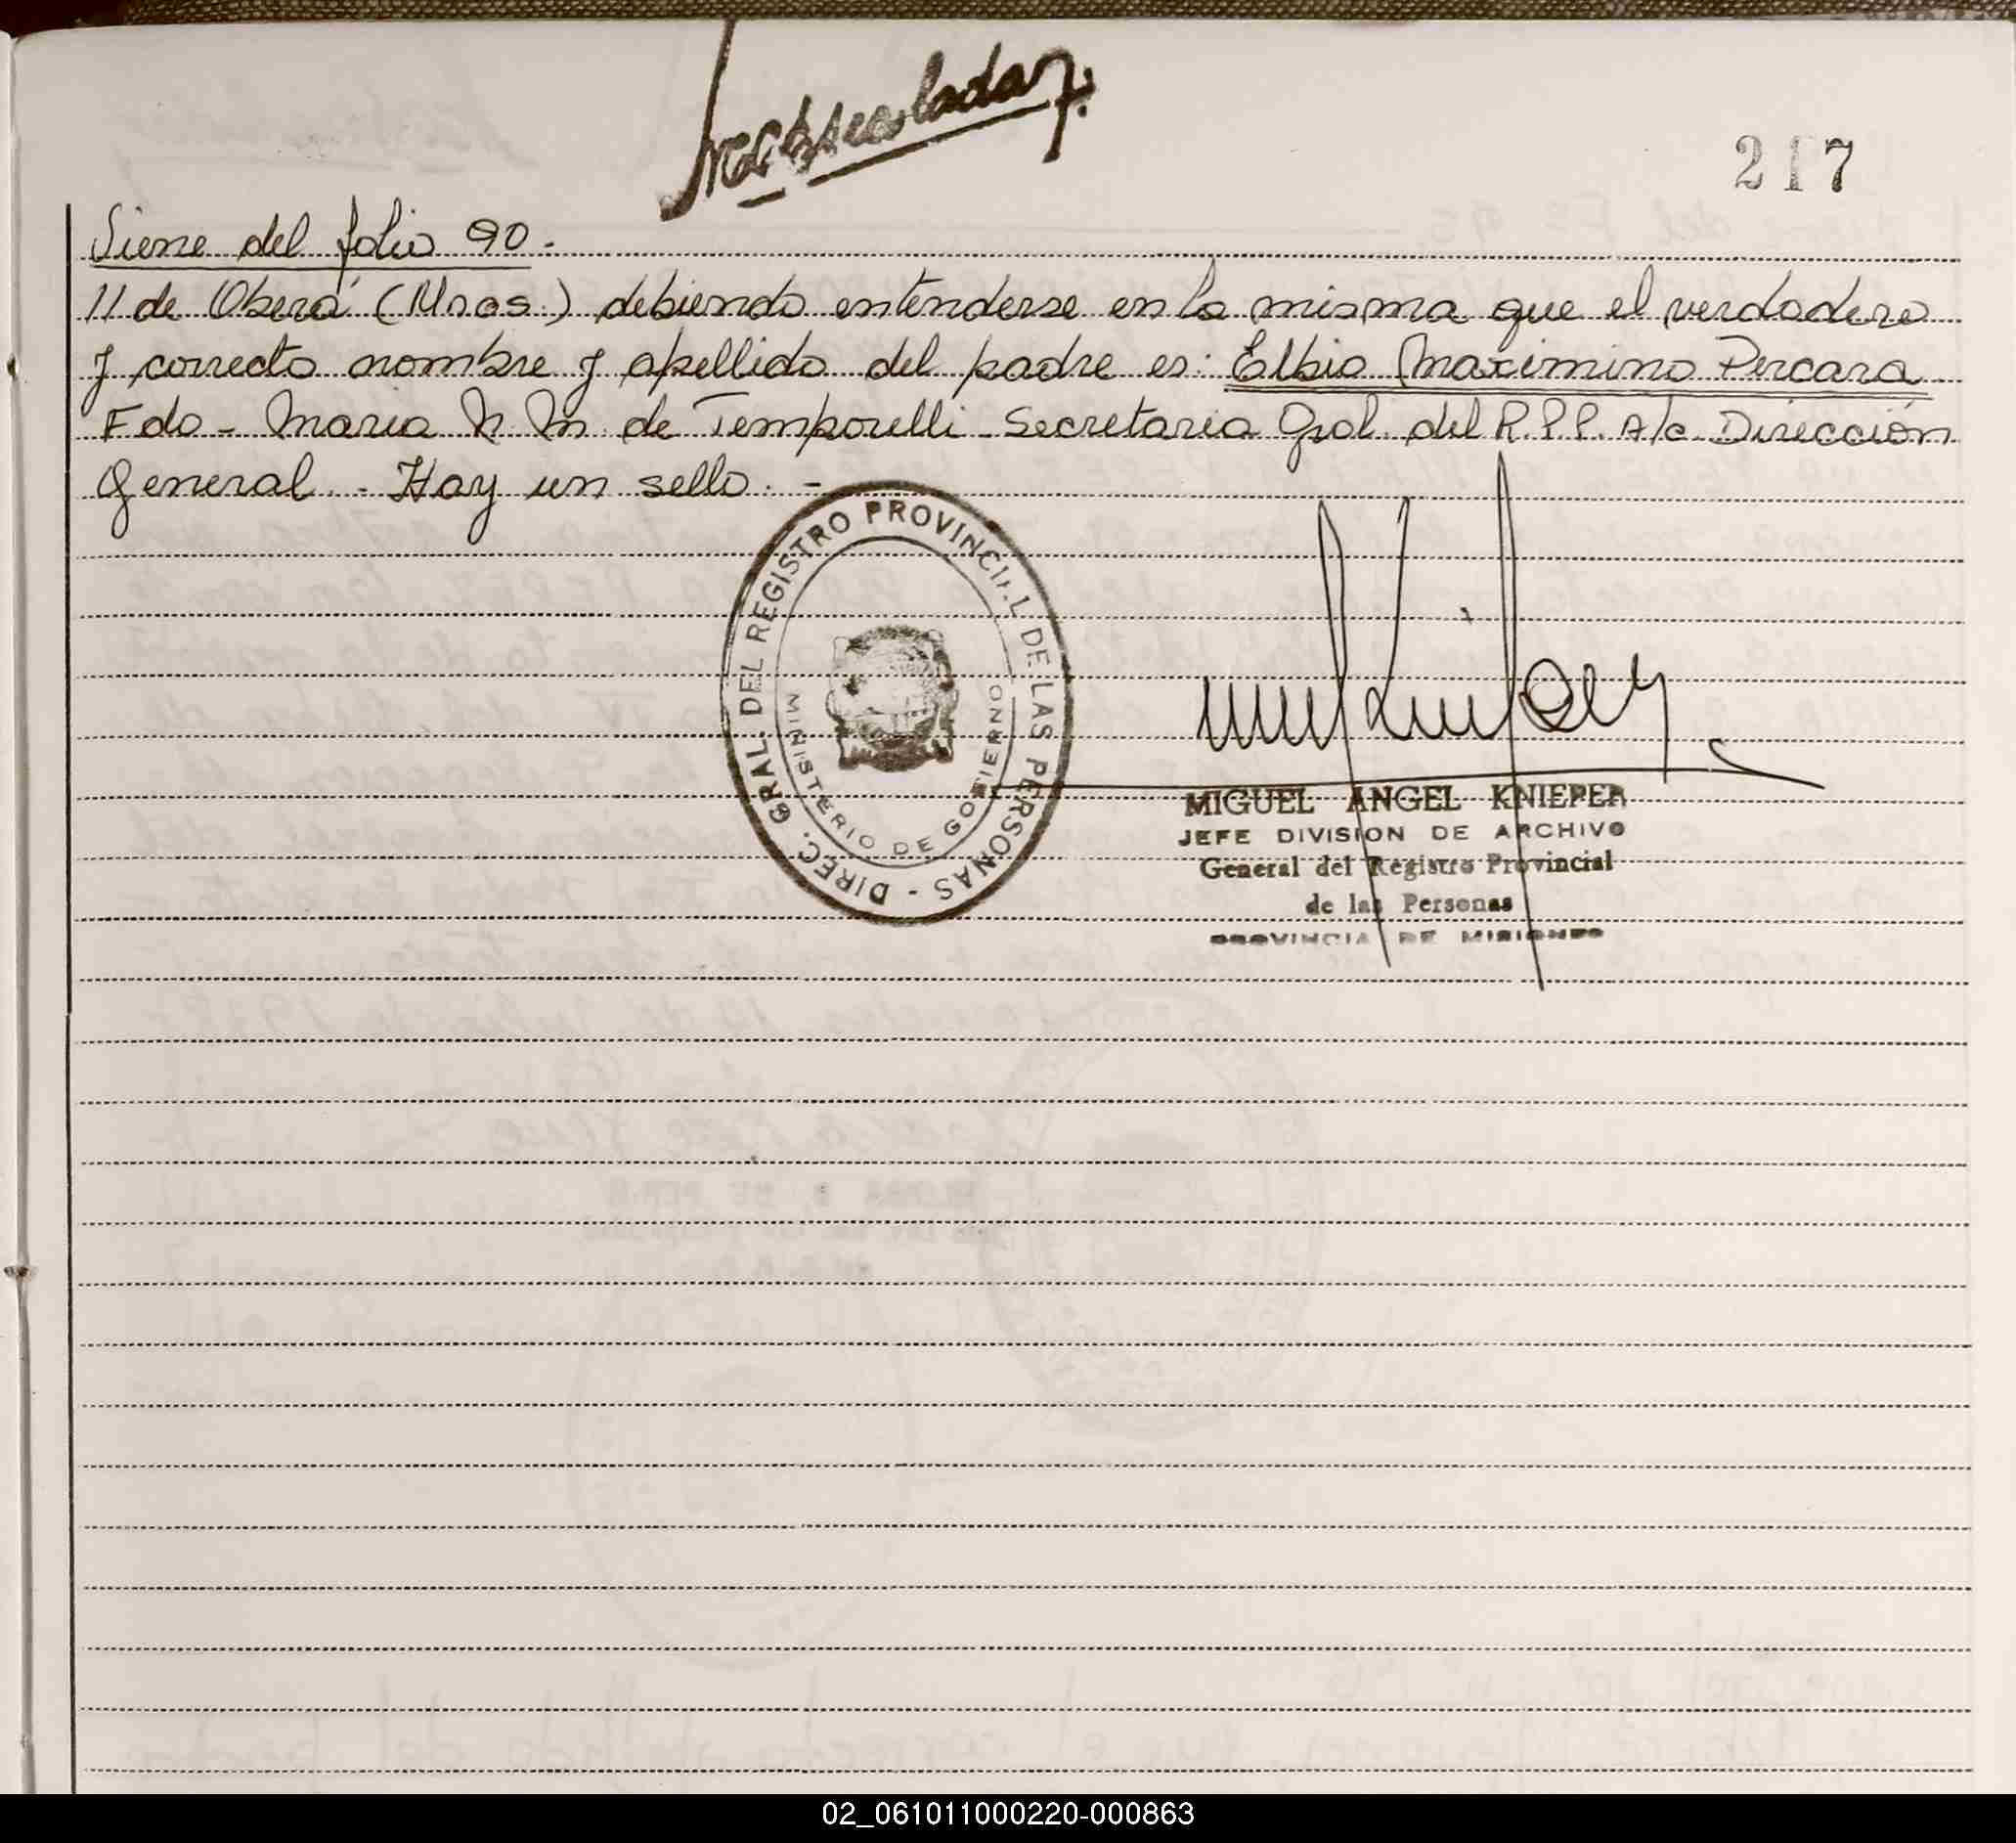 217
Viene del folio 90.-
11 de Oberá (Mnes.) debiendo entenderse en la misma que el verdadero
y correcto nombre y apellido del padre es: Elbio Maximino Percara
Fdo - Maria N. M. de Temporelli - Secretaria Gral. del R.P.P. A/c Dirección
General. - Hay un sello. -
DIREC. GRAL. DEL REGISTRO PROVINCIAL DE LAS PERSONAS -
MINISTERIO DE GOBIERNO
MIGUEL ANGEL KNIEPER
JEFE DIVISION DE ARCHIVO
General del Registro Provincial
de las Personas
PROVINCIA DE MISIONES
02_061011000220-000863